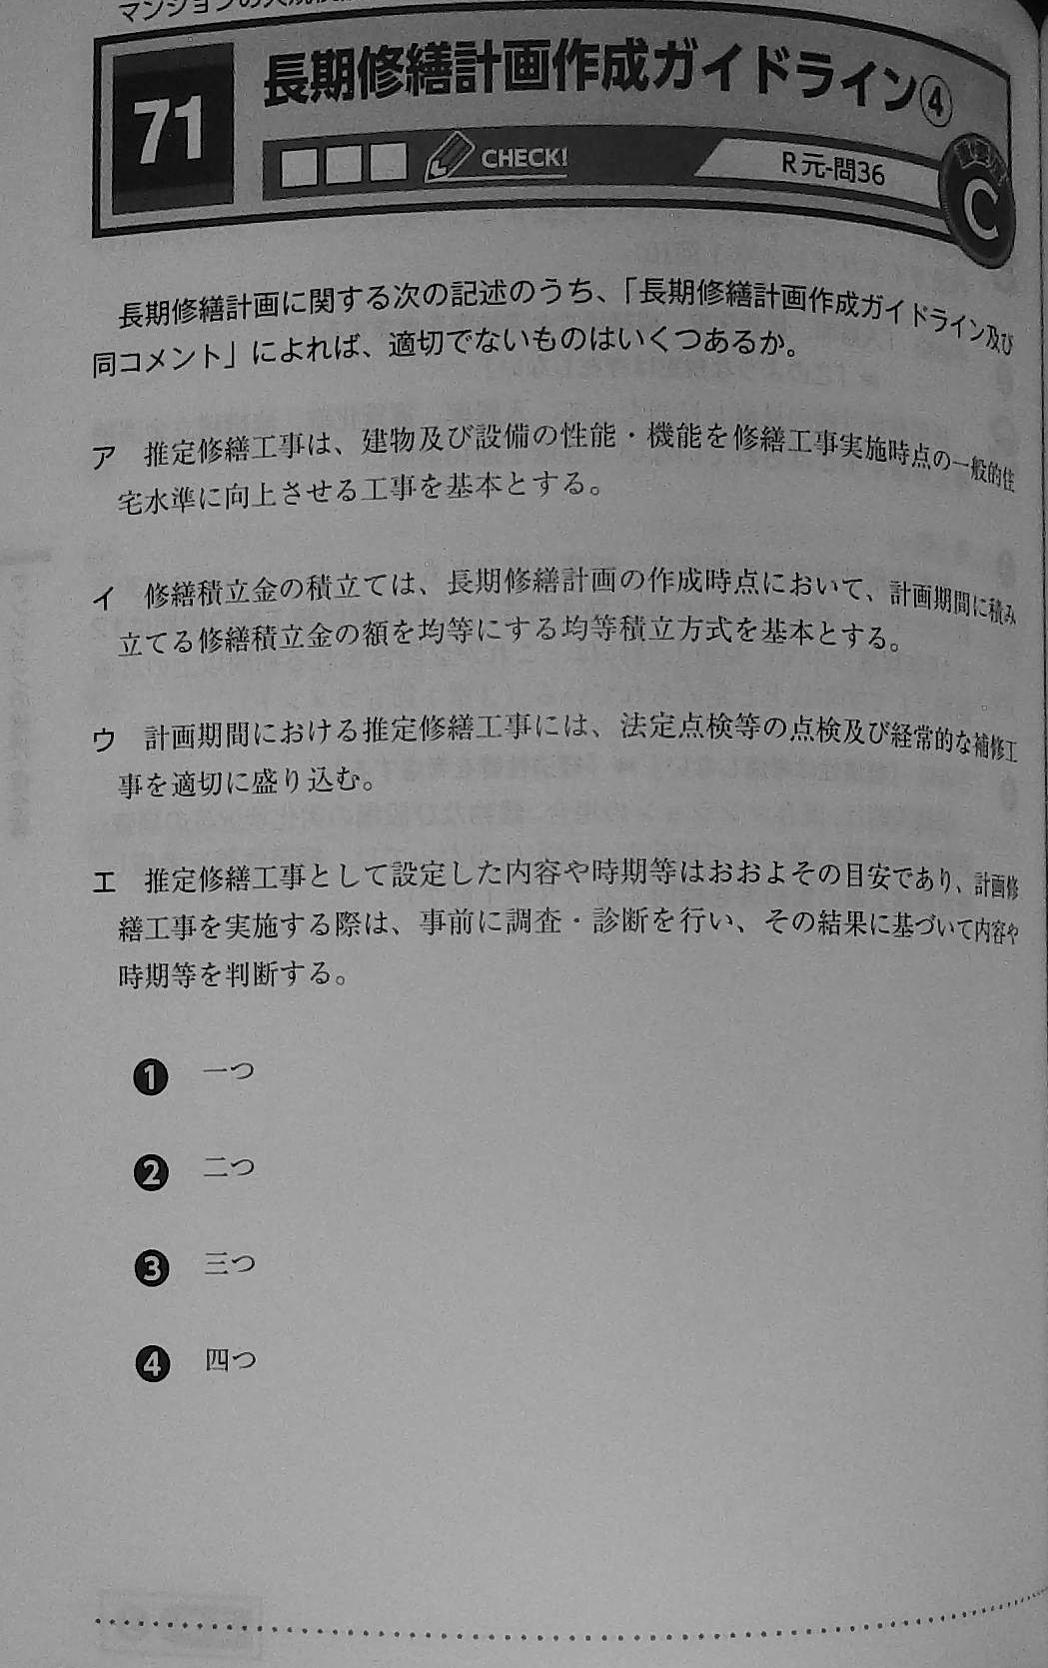 マンションの大規模
71
長期修繕計画作成ガイドライン④
CHECK!
R元-問36
重要度
C
長期修繕計画に関する次の記述のうち、「長期修繕計画作成ガイドライン及び
同コメント」によれば、適切でないものはいくつあるか。
ア 推定修繕工事は、建物及び設備の性能・機能を修繕工事実施時点の一般的住
宅水準に向上させる工事を基本とする。
イ 修繕積立金の積立ては、長期修繕計画の作成時点において、計画期間に積み
立てる修繕積立金の額を均等にする均等積立方式を基本とする。
ウ 計画期間における推定修繕工事には、法定点検等の点検及び経常的な補修工
事を適切に盛り込む。
エ 推定修繕工事として設定した内容や時期等はおおよその目安であり、計画修
繕工事を実施する際は、事前に調査・診断を行い、その結果に基づいて内容や
時期等を判断する。
❶ 一つ
❷ 二つ
❸ 三つ
❹ 四つ